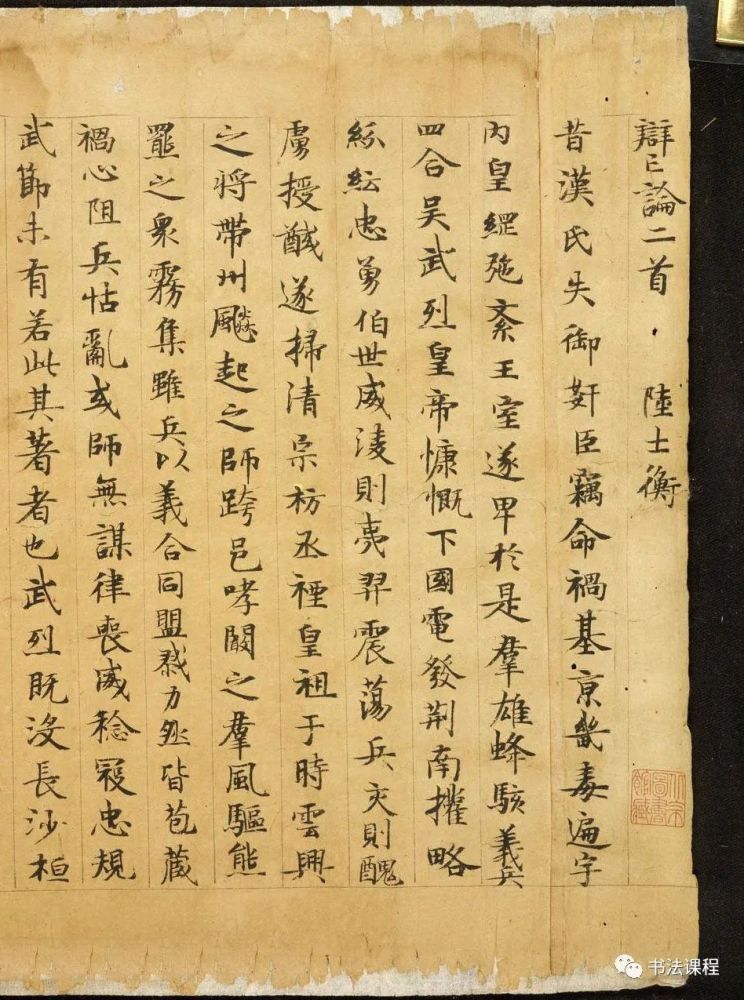 辯亡論二首 陸士衡
昔漢氏失御奸臣竊命禍基京畿毒遍宇
内皇綱弛紊王室遂卑於是羣雄蜂駭義兵
四合吴武烈皇帝慷慨下國電發荆南擢略
紛紜忠勇伯世威淩則夷羿震蕩兵交則醜
虜授馘遂掃清宗枋丞禋皇祖于時雲興
之將帶州飈起之師跨邑哮闞之羣風驅熊
羆之衆霧集雖兵以義合同盟勠力然皆苞蔵
禍心阻兵怙亂或師無謀律喪威稔寇忠規
武節未有若此其著者也武烈既没長沙桓
北京圖書館藏
书法课程